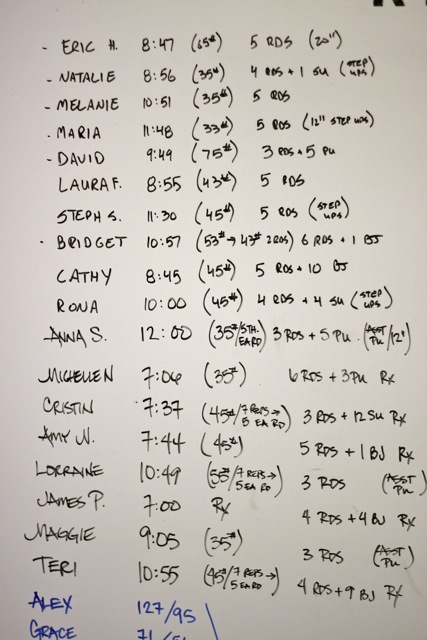 - ERIC H. 8:47 (65#) 5 RDS (20")
- NATALIE 8:56 (35#) 4 RDS + 1 SU (STEP UPS)
- MELANIE 10:51 (35#) 5 RDS
- MARIA 11:48 (33#) 5 RDS (12" STEP UPS)
- DAVID 9:49 (75#) 3 RDS + 5 PU
LAURA F. 8:55 (43#) 5 RDS
STEPH S. 11:30 (45#) 5 RDS (STEP UPS)
- BRIDGET 10:57 (53# → 43# 2RDS) 6 RDS + 1 BJ
CATHY 8:45 (45#) 5 RDS + 10 BJ
RONA 10:00 (45#) 4 RDS + 4 SU (STEP UPS)
ANNA S. 12:00 (35#/5TH. EA RD) 3 RDS + 5 PU (ASST PU/12")
MICHELLE N 7:06 (35#) 6 RDS + 3 PU Rx
CRISTIN 7:37 (45#/7 REPS → 5 EA RD) 3 RDS + 12 SU Rx
AMY N. 7:44 (45#) 5 RDS + 1 BJ Rx
LORRAINE 10:49 (55#/7 REPS → 5 EA RD) 3 RDS (ASST PU)
JAMES P. 7:00 Rx 4 RDS + 4 BJ Rx
MAGGIE 9:05 (35#) 3 RDS (ASST PU)
TERI 10:55 (45#/7 REPS → 5 EA RD) 4 RDS + 9 BJ Rx
ALEX 127/95
GRACE